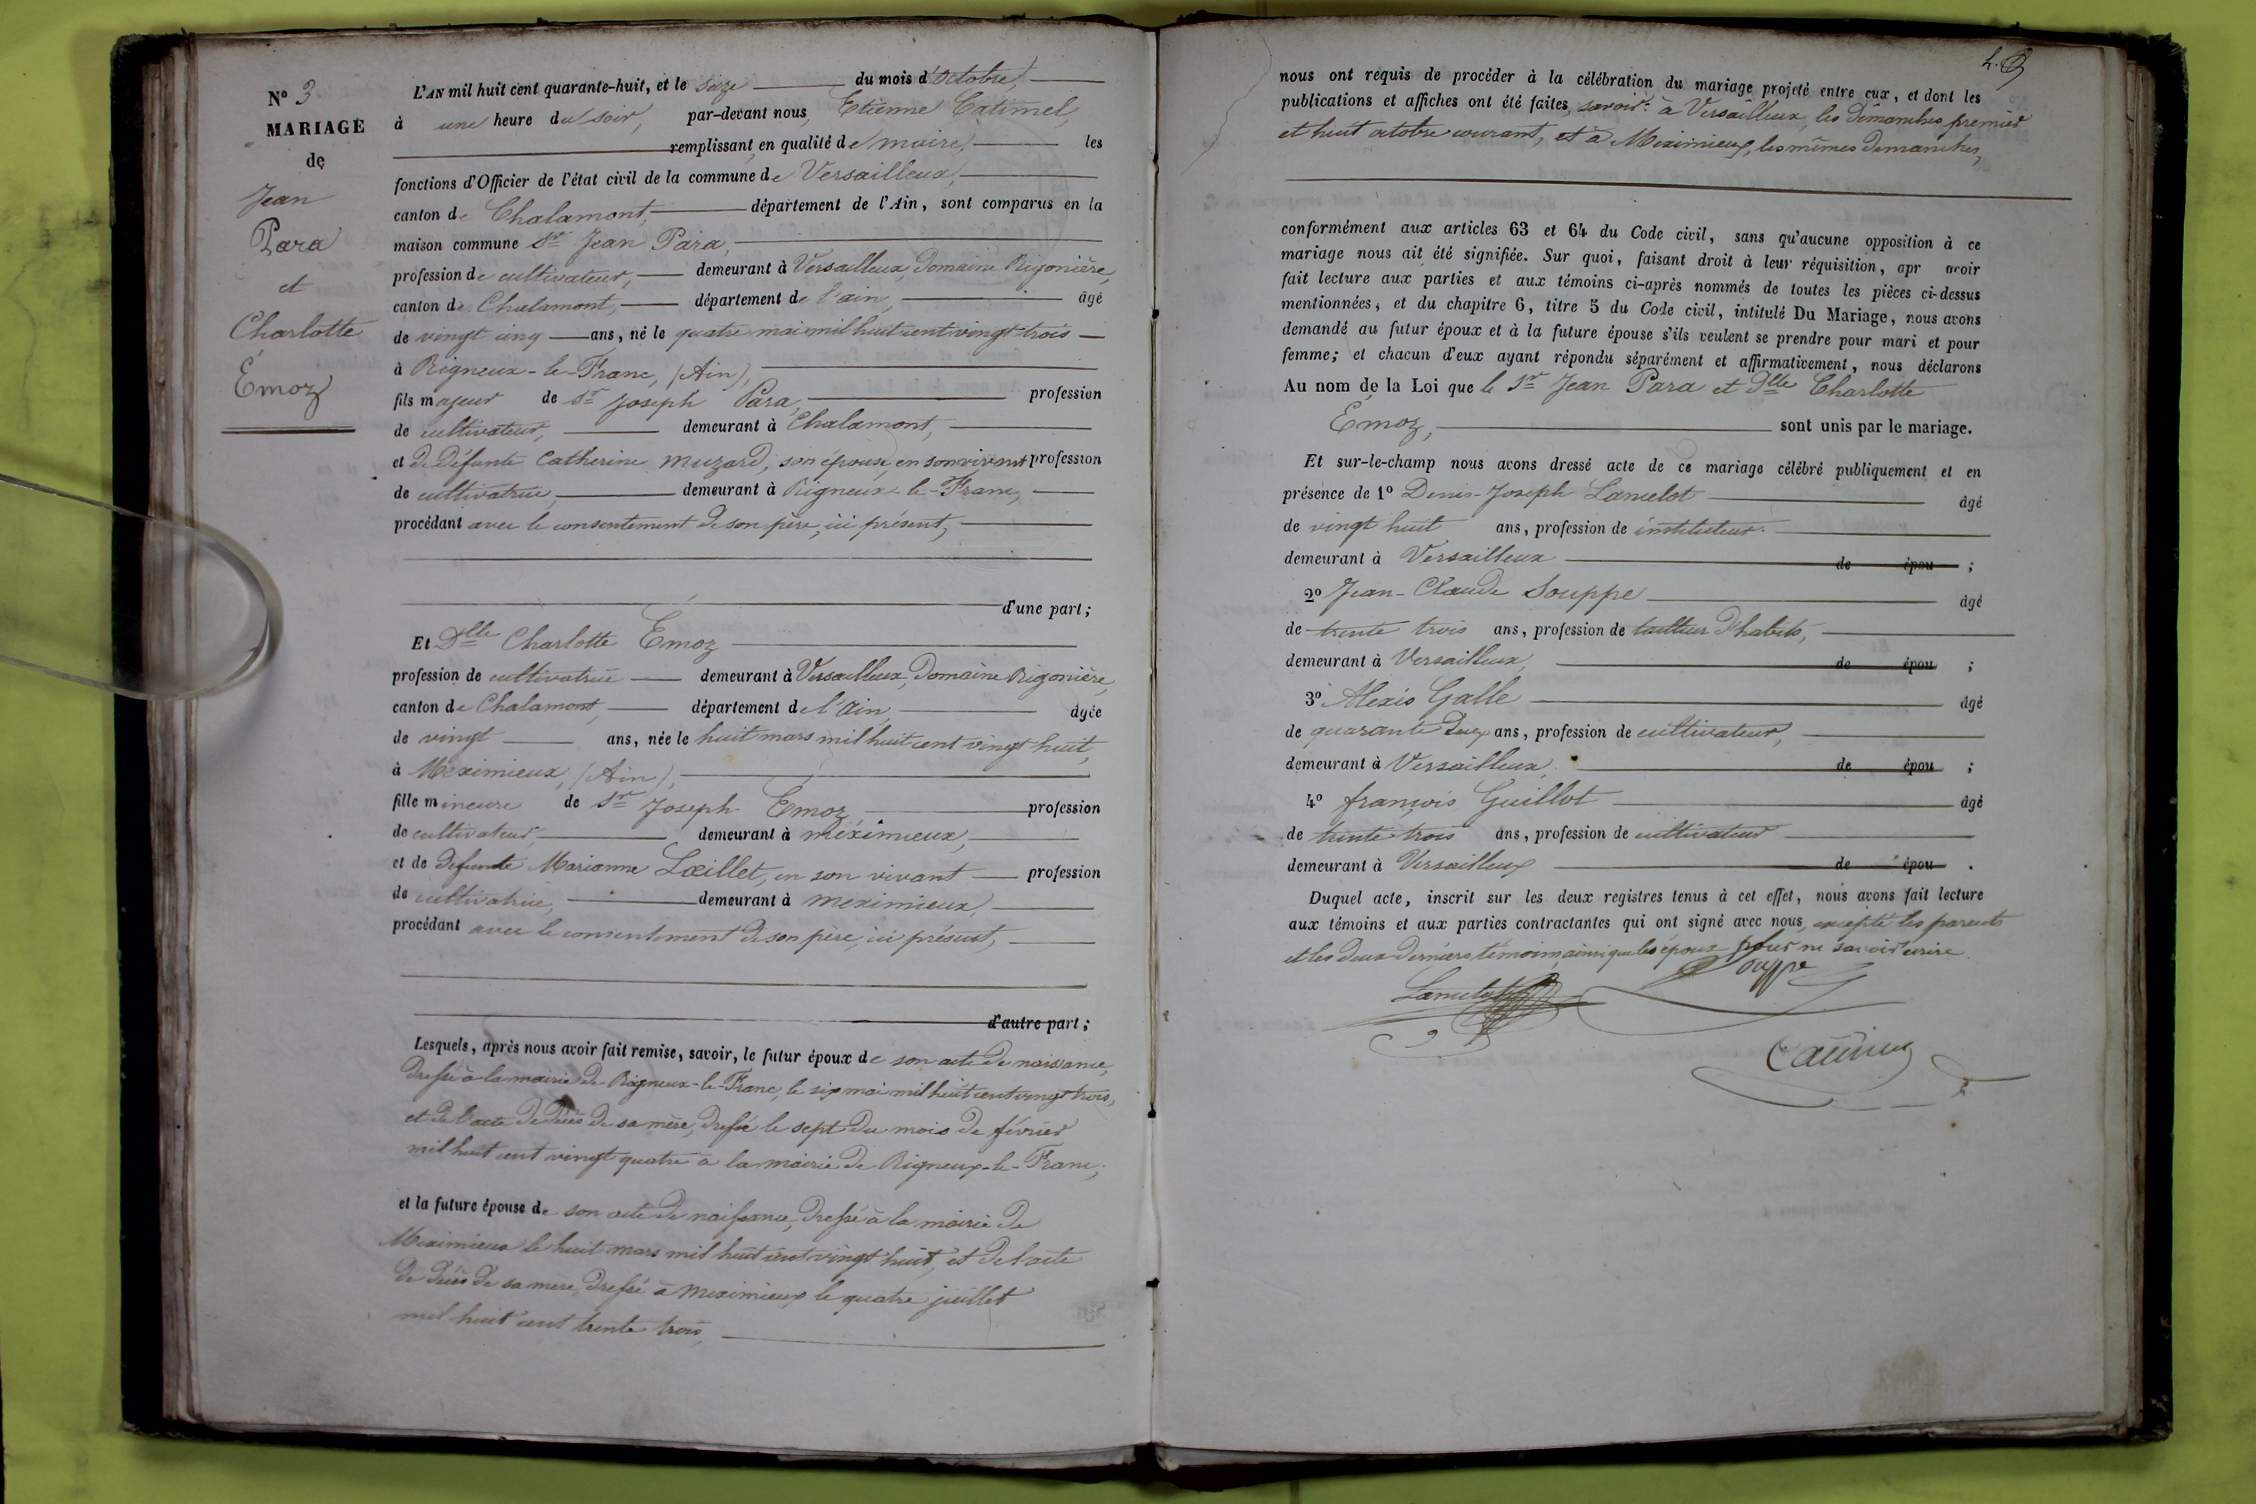 N° 3
MARIAGE
de
Jean
Para
et
Charlotte
Émoz
L'AN mil huit cent quarante-huit, et le seize du mois d'octobre,
à une heure du soir, par-devant nous, Etienne Catimel,
remplissant, en qualité de maire, les
fonctions d'Officier de l'état civil de la commune de Versailleux,
canton de Chalamont, département de l'Ain, sont comparus en la
maison commune Sr Jean Para,
profession de cultivateur, demeurant à Versailleux, Domaine Rigonière,
canton de Chalamont, département de l'ain, âgé
de vingt cinq ans, né le quatre mai mil huit cent vingt trois
à Rigneux-le-Franc, (Ain),
fils majeur de Sr Joseph Para, profession
de cultivateur, demeurant à Chalamont,
et de défunte Catherine Muzard, son épouse, en son vivant profession
de cultivatrice, demeurant à Rigneux-le-Franc,
procédant avec le consentement de son père, ici présent,
d'une part;
Et Dlle Charlotte Émoz
profession de cultivatrice demeurant à Versailleux, Domaine Rigonière,
canton de Chalamont, département de l'Ain, âgée
de vingt ans, née le huit mars mil huit cent vingt huit,
à Meximieux, (Ain),
fille mineure de Sr Joseph Émoz profession
de cultivateur, demeurant à méximieux,
et de défunte Marianne Lœillet, en son vivant profession
de cultivatrice, demeurant à meximieux,
procédant avec le consentement de son père, ici présent,
d'autre part;
Lesquels, après nous avoir fait remise, savoir, le futur époux de son acte de naissance,
dressé à la mairie de Rigneux-le-Franc, le six mai mil huit cent vingt trois,
et de l'acte de décès de sa mère, dressé le sept du mois de février
mil huit cent vingt quatre à la mairie de Rigneux-le-Franc;
et la future épouse de son acte de naissance, dressé à la mairie de
Meximieux le huit mars mil huit cent vingt huit, et de l'acte
de décès de sa mère, dressé à meximieux le quatre juillet
mil huit cent trente trois,
nous ont requis de procéder à la célébration du mariage projeté entre eux, et dont les
publications et affiches ont été faites, savoir: à Versailleux, les Dimanches premier
et huit octobre courant, et à Meximieux, les mêmes dimanches,
conformément aux articles 63 et 64 du Code civil, sans qu'aucune opposition à ce
mariage nous ait été signifiée. Sur quoi, faisant droit à leur réquisition, apr avoir
fait lecture aux parties et aux témoins ci-après nommés de toutes les pièces ci-dessus
mentionnées, et du chapitre 6, titre 5 du Code civil, intitulé Du Mariage, nous avons
demandé au futur époux et à la future épouse s'ils veulent se prendre pour mari et pour
femme; et chacun d'eux ayant répondu séparément et affirmativement, nous déclarons
Au nom de la Loi que le Sr Jean Para et Dlle Charlotte
Émoz, sont unis par le mariage.
Et sur-le-champ nous avons dressé acte de ce mariage célébré publiquement et en
présence de 1° Denis-Joseph Lancelot âgé
de vingt huit ans, profession de instituteur.
demeurant à Versailleux de épou ;
2° Jean-Claude Souppe âgé
de trente trois ans, profession de tailleur d'habits,
demeurant à Versailleux, de épou ;
3° Alexis Galle âgé
de quarante deux ans, profession de cultivateur,
demeurant à Versailleux, de épou ;
4° françois Guillot âgé
de trente trois ans, profession de cultivateur
demeurant à Versailleux de épou .
Duquel acte, inscrit sur les deux registres tenus à cet effet, nous avons fait lecture
aux témoins et aux parties contractantes qui ont signé avec nous, excepté les parents
et les deux derniers témoins, ainsi que les époux pour ne savoir écrire.
Souppe
Lancelot
Catimel